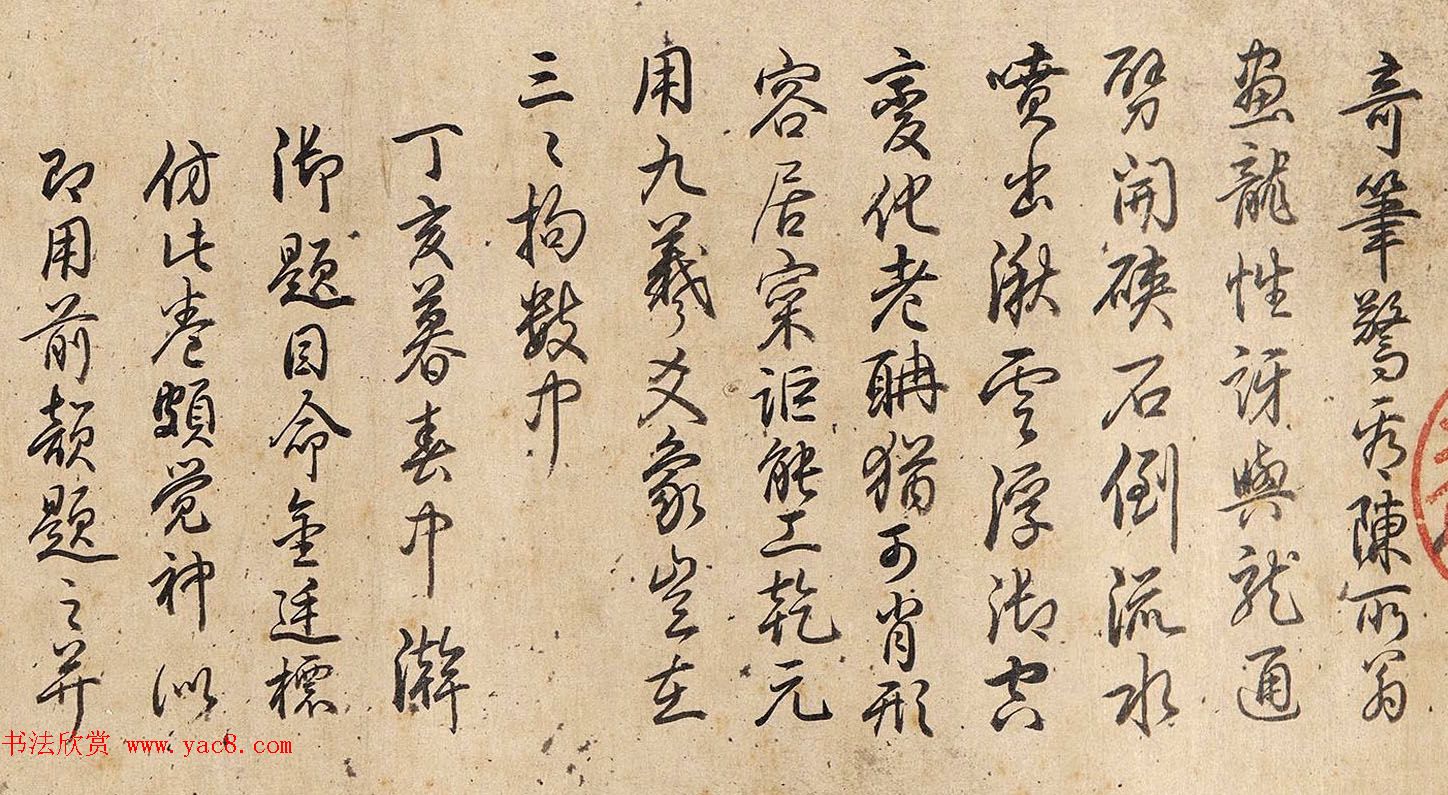 奇筆驚看陳所翁
畫龍性訝與龍通
劈開硤石倒流水
噴出湫雲浮御空
變化老聃猶可肖形
容居寀詎能工乾元
用九羲爻象豈在
三〻拘數中
丁亥暮春中澣
御題目命金廷標
仿此卷頗覺神似
即用前韻題之並
书法欣赏 www.yac8.com